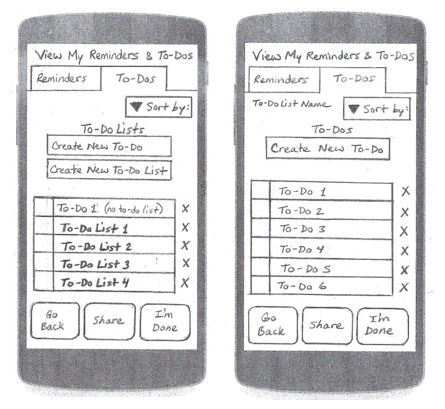 View My Reminders & To-Dos
Reminders
To-Dos
▼ Sort by:
To-Do Lists
Create New To-Do
Create New To-Do List
To-Do 1 (no to-do list) X
To-Do List 1 X
To-Do List 2 X
To-Do List 3 X
To-Do List 4 X
Go Back
Share
I'm Done
View My Reminders & To-Dos
Reminders
To-Dos
To-Do List Name
▼ Sort by:
To-Dos
Create New To-Do
To-Do 1 X
To-Do 2 X
To-Do 3 X
To-Do 4 X
To-Do 5 X
To-Do 6 X
Go Back
Share
I'm Done